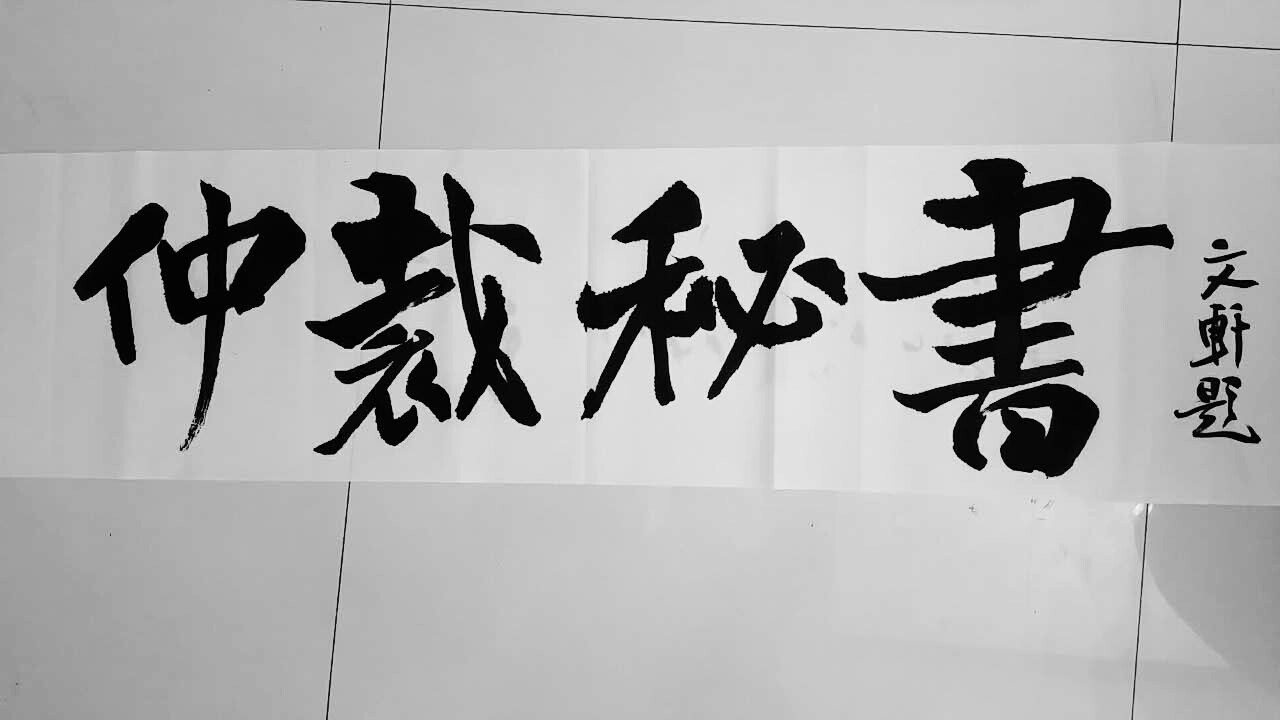 仲裁秘書
文軒題